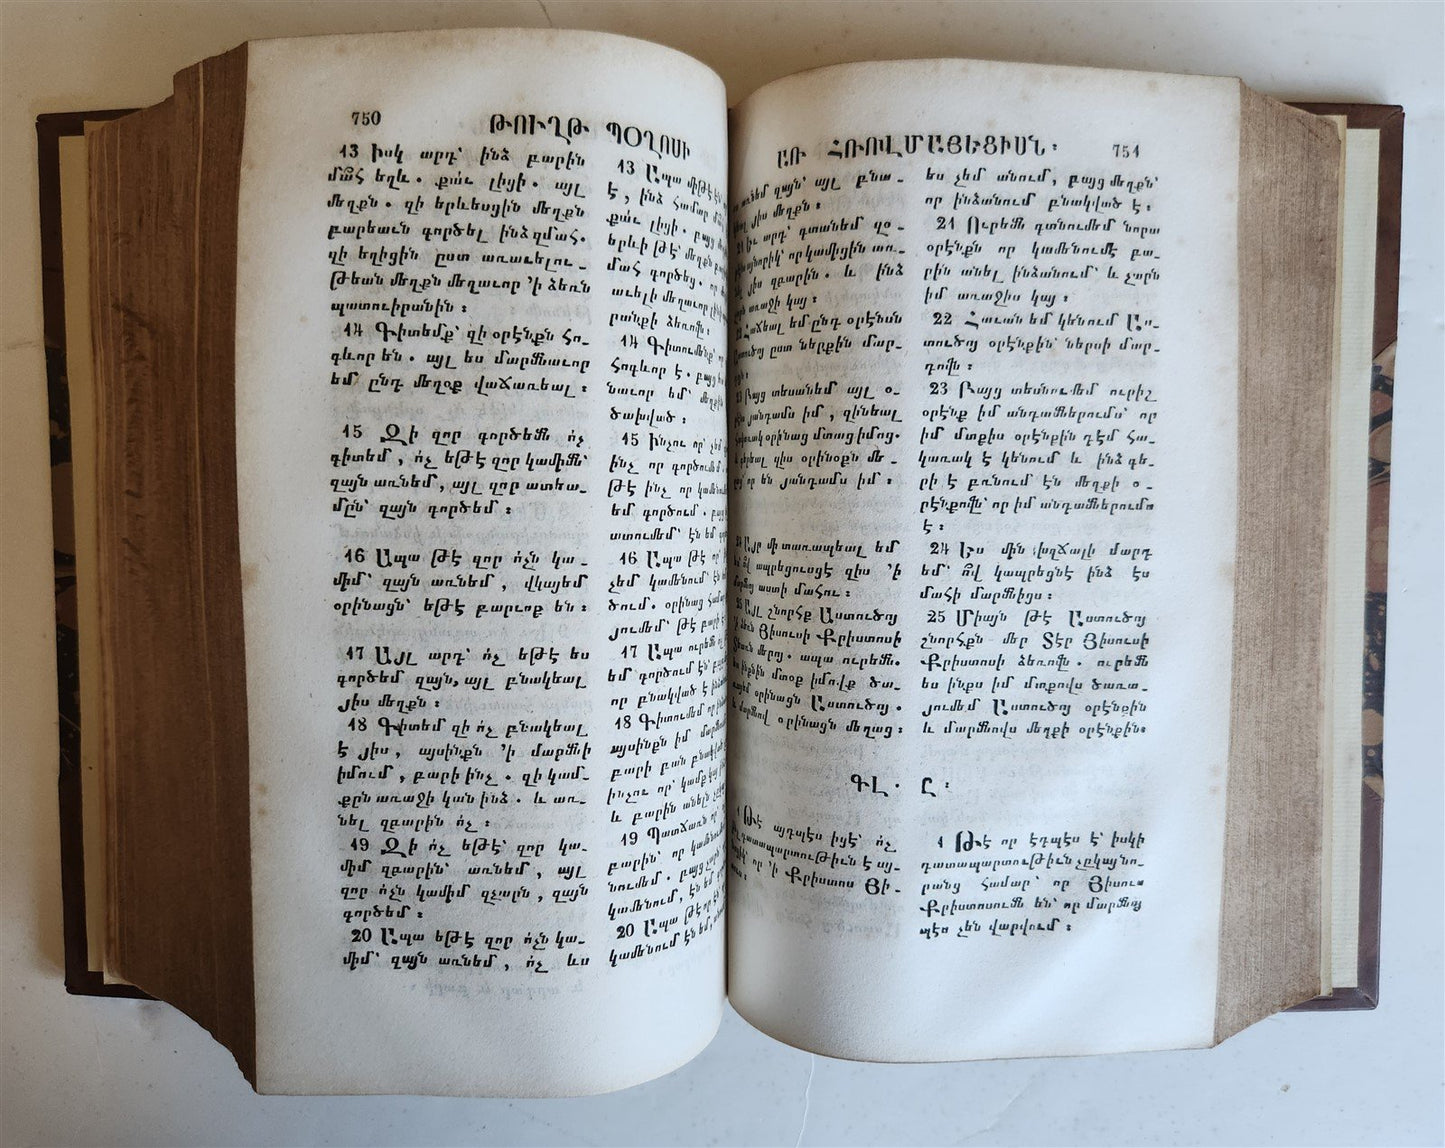 750 ԹՈՒՂԹ ՊՕՂՈՍԻ
13 Իսկ արդ՝ ինձ բարին
մա՞հ եղև. քա՛ւ լիցի. այլ
մեղքն. զի երևեսցին մեղքն
բարեաւն գործել ինձ զմահ.
զի եղիցին ըստ առաւելու֊
թեան մեղքն մեղաւոր ՚ի ձեռն
պատուիրանին։
14 Գիտեմք՝ զի օրէնքն հո֊
գևոր են. այլ ես մարմնաւոր
եմ ընդ մեղօք վաճառեալ։
15 Զի զոր գործեմն ոչ
գիտեմ, ոչ եթէ զոր կամիմն՝
զայն առնեմ, այլ զոր ատեա֊
մըն՝ զայն գործեմ։
16 Ապա թէ զոր ոչն կա֊
միմ՝ զայն առնեմ, վկայեմ
օրինացն՝ եթէ բարւոք են։
17 Այլ արդ՝ ոչ եթէ ես
գործեմ զայն, այլ բնակեալ
յիս մեղքն։
18 Գիտեմ զի ոչ բնակեալ
է յիս, այսինքն ՚ի մարմնի
իմում, բարի ինչ. զի կամ֊
քըն առաջի կան ինձ. և առ֊
նել զբարին ոչ։
19 Զի ոչ եթէ՝ զոր կա֊
միմ զբարին՝ առնեմ, այլ
զոր ոչն կամիմ զչարն, զայն
գործեմ։
20 Ապա եթէ զոր ոչն կա֊
միմ՝ զայն առնեմ, ոչ ևս
13 Ապա միթէ
է, ինձ համար
քաւ լիցի. բայց
երևի թէ՝ մեղքն
մահ գործեց. որ
աւելի մեղաւոր լինի
րանքի ձեռովն։
14 Գիտումենք՝
Հոգևոր է. բայց
նաւոր եմ՝ մեղքին
ծախված։
15 Ինչու որ՝ չեմ
ինչ որ գործումեմ
թէ ինչ որ կամենում
եմ գործում. բայց
ատումեմ՝ էն եմ
16 Ապա թէ որ՝
չեմ կամենում՝ էն
ծում. օրինաց համար
յումեմ՝ թէ բարի
17 Ապա ուրեմն
եմ գործում էն՝
որ բնակված է
18 Գիտումեմ որ
այսինքն իմ մարմնում
բարի բան բնակված
ինչու որ՝ կամքը կայ
և բարին անելն
19 Պատճառն որ՝
բարին՝ որ կամենում
նումեմ. բայց չարի
կամենում, էն եմ
20 Ապա թէ որ էն՝
կամենում էն եմ,
ԱՌ ՀՌՈՎՄԱՅԵՑԻՍՆ։ 751
առնեմ զայն՝ այլ բնա֊
յիս մեղքն։
21 Իւր արդ՝ գտանեմ զօ֊
որ կամիցին առ֊
յիս զբարին. և ինձ
առաջի կայ։
22 Հաճեալ եմ ընդ օրէնսն
Աստուծոյ ըստ ներքին մար֊
23 Բայց տեսանեմ այլ օ֊
յանդամս իմ, զինեալ
օրինաց մտաց իմոց.
գերեալ զիս օրինօքն մե֊
որ են յանդամս իմ։
24 Այր մի տառապեալ եմ
ո՞վ ապրեցուսցէ զիս ՚ի
աստի մահու։
25 Այլ շնորհք Աստուծոյ
Յիսուսի Քրիստոսի
Տեառն մերոյ. ապա ուրեմն.
ես ինքնին մտօք իմովք ծա֊
օրինացն Աստուծոյ.
և մարմնով օրինացն մեղաց։
ես չեմ անում, բայց մեղքն՝
որ ինձանում բնակված է։
21 Ուրեմն գտնումեմ նորա
օրէնքն որ կամենումէ բա֊
րին անել ինձանում՝ և չարն
իմ առաջիս կայ։
22 Հաւան եմ կենում Աս֊
տուծոյ օրէնքին՝ ներսի մար֊
դովն։
23 Բայց տեսնումեմ ուրիշ
օրէնք իմ անդամներումս՝ որ
իմ մտքիս օրէնքին դէմ հա֊
կառակ է կենում և ինձ գե֊
րի է բռնում էն մեղքի օ֊
րէնքովն՝ որ իմ անդամներումս
է։
24 Ես մին խղճալի մարդ
եմ՝ ո՞վ կապրեցնէ ինձ էս
մահի մարմնիցս։
25 Միայն թէ Աստուծոյ
շնորհքն մեր Տէր Յիսուսի
Քրիստոսի ձեռովն. ուրեմն
ես ինքս իմ մտքովս ծառա֊
յումեմ Աստուծոյ օրէնքին
և մարմնովս մեղքի օրէնքին։
ԳԼ. Ը։
1 Թէ այդպէս իցէ՝ ոչ
դատապարտութիւն է այ֊
որ ՚ի Քրիստոս Յի֊
1 Թէ որ էդպէս է՝ իսկի
դատապարտութիւն չըկայ նո֊
րանց համար՝ որ Յիսուս
Քրիստոսումն են՝ որ մարմնոյ
պէս չեն վարվում։